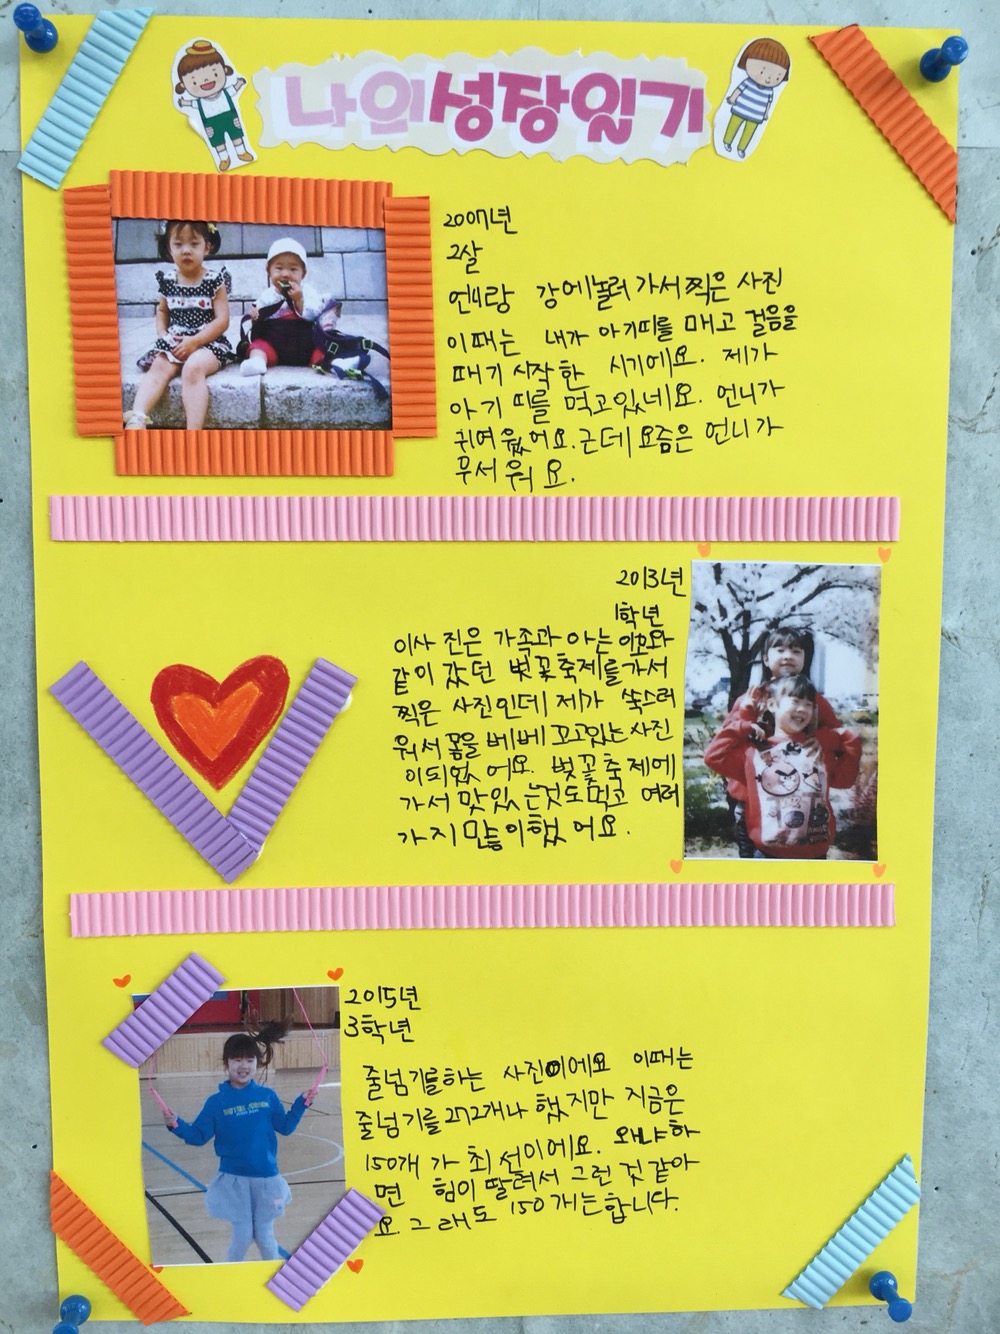 나의성장일기
2007년
2살
언니랑 강에놀러가서찍은 사진
이때는 내가 아기띠를 매고 걸음을
때기 시작한 시기에요. 제가
아기 띠를 먹고있네요. 언니가
귀여웠어요.근데요즘은 언니가
무서워요.
2013년
1학년
이사진은 가족과 아는 이모와
같이 갔던 벚꽃축제를가서
찍은 사진인데 제가 쑥스러
워서 몸을 베베 꼬고있는사진
이되었어요. 벚꽃축제에
가서 맛있는것도먹고 여러
가지 만들이했어요.
2015년
3학년
줄넘기를하는 사진이에요 이때는
줄넘기를 272개나 했지만 지금은
150개가 최선이에요. 왜냐하
면 힘이 딸려서 그런 것 같아
요.그래도 150개는합니다.